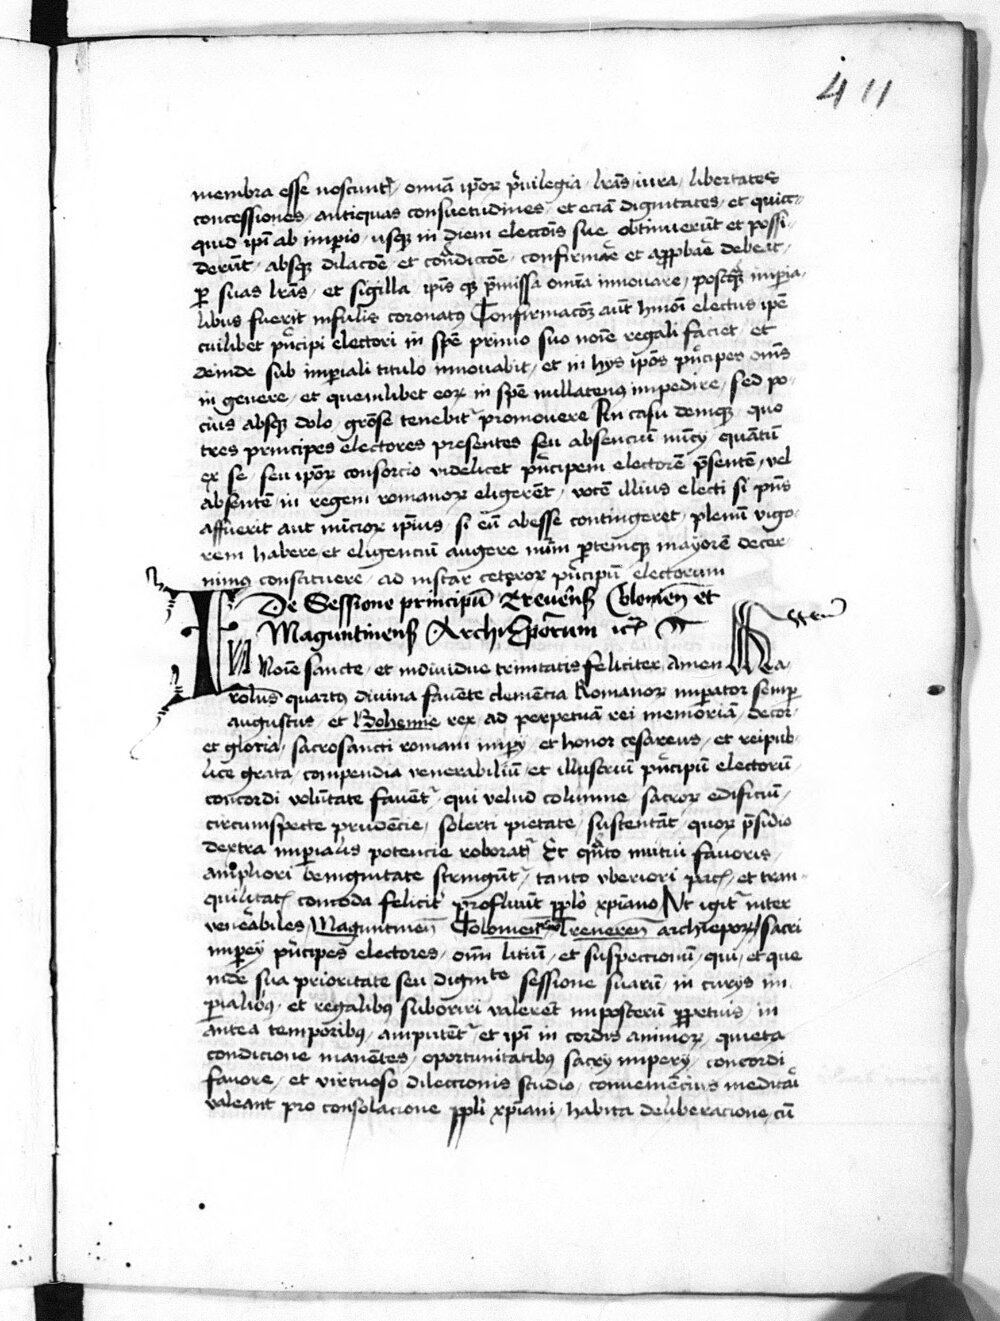 411
membra esse noscunt᷑ / om̄ia ip̄oꝝ p̄uilegia / lr̄as / iura / libertates
concessiones / antiquas consuetudines / et eciā dignitates / et quic-
quid ip̄i ab imperio / usqꝫ in diem elecc̄ois sue obtinuerūt et possi-
derūt / absqꝫ dilac̄oe et cont̄dicc̄oe / confirmar̄e et app̄robar̄e debeat /
ꝑ suas lr̄as / et sigilla ip̄is qꝫ p̄missa om̄ia innouare / postqꝫ imperia-
libus fuerit infulis coronatꝰ Confirmac̄oeꝫ aūt hm̄oi electus ip̄e
cuilibet pͥncipi electori in sp̄e primo suo noīe regali faciet / et
deinde sub imperiali titulo innouabit / et in hys ip̄os pͥncipes om̄s
in genere / et quemlibet eoꝝ in sp̄e nullatenꝰ impedire / sed po-
cius absqꝫ dolo / gr̄ose tenebit᷑ promouere In casu demqꝫ quo
tres principes electores presentes seu absenciū nūcy quartū
ex se / seu ip̄oꝝ consorcio videlicet pͥncipem electorē p̄sentē / vel
absentē in regem romanoꝝ eligerēt / vocē illius electi si p̄ns
affuerit aut nūcioꝝ ip̄ius / si eū abesse contingeret / plenū vigo-
rem habere et eligenciū augere nūm ꝑtemqꝫ mayorē decer-
nimꝰ constituere / ad instar ceteroꝝ pͥncipū electorum
De Sessione principū Treuen̄ß Colonien̄ et
Maguntinenß Archiep̄orum ic̄
In Noīe sancte / et indiuidue trinitatis feliciter Amen Ka-
rolus quartꝰ diuina fauēte clemēcia Romanoꝝ imperator semꝑ
augustus / et Bohemie rex / ad perpetuā rei memoriā / decor-
et gloria / sacrosancti romani impery / et honor cesareus / et reipub-
lice grata / compendia venerabiliū / et illustriū pͥncipū electorū
concordi volūtate fauent᷑ / qui velud columne / sacroꝝ edificiū /
circumspecte prudēcie / solerti pietate / sustentāt / quoꝝ p̄sidio
dextra imperialis potencie roborat᷑ Et quāto mutui fauoris /
ampliori benignitate stringūt᷑ / tanto vberiori pacis / et tran-
quilitatis comoda felicit᷑ profluūt ppl̄o xp̄iano Vt igit᷑ inter
venerabiles / Maguntinen̄ Colonien̄ Treueren̄ archiep̄oꝝ / sacri
impery pͥncipes electores / om̄ litiū / et suspectionū / qui / et que
inde sua prioritate seu dignitᵗᵉ sessione suarū in curys im
ꝑialibꝰ / et regalibus suboriri valerēt imposterū ꝑpetuis / in
antea temporibꝰ / amputēt᷑ / et ip̄i in cordis animoꝝ / quieta
condicione manētes / oportunitatibꝰ sacry impery / concordi
fauore / et virtuoso dileccionis studio / conueniēcius meditari
valeant pro consolacione ppl̄i xp̄iani / habita deliberacione / cū